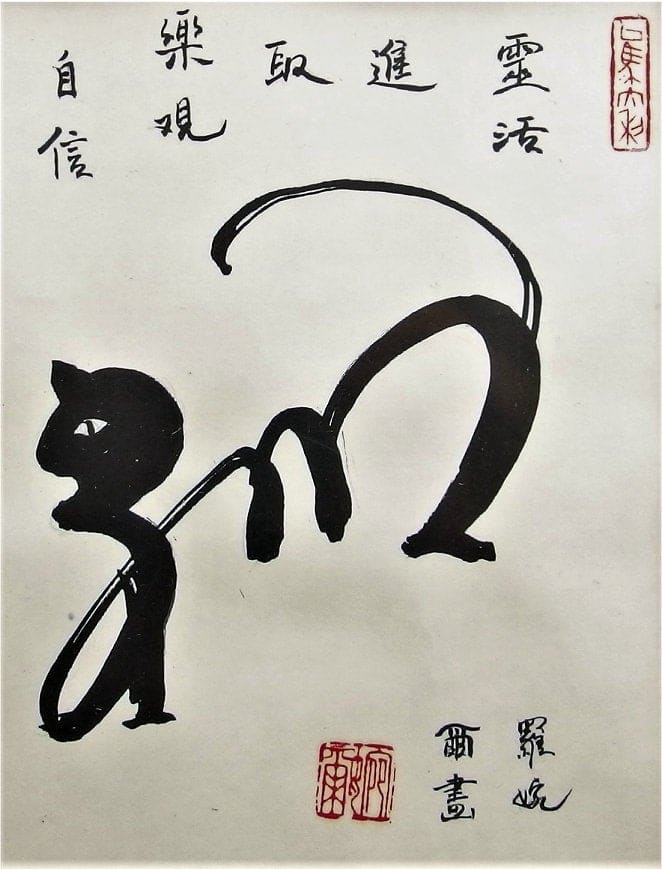 靈活
進取
樂觀
自信
羅婉
爾畫